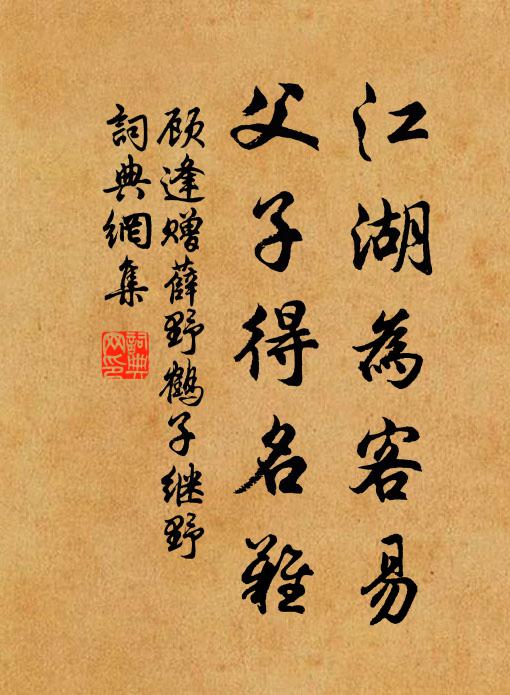 江湖為客易
父子得名難
顾逢赠薛野鶴子继野
詞典網集
詞典网印